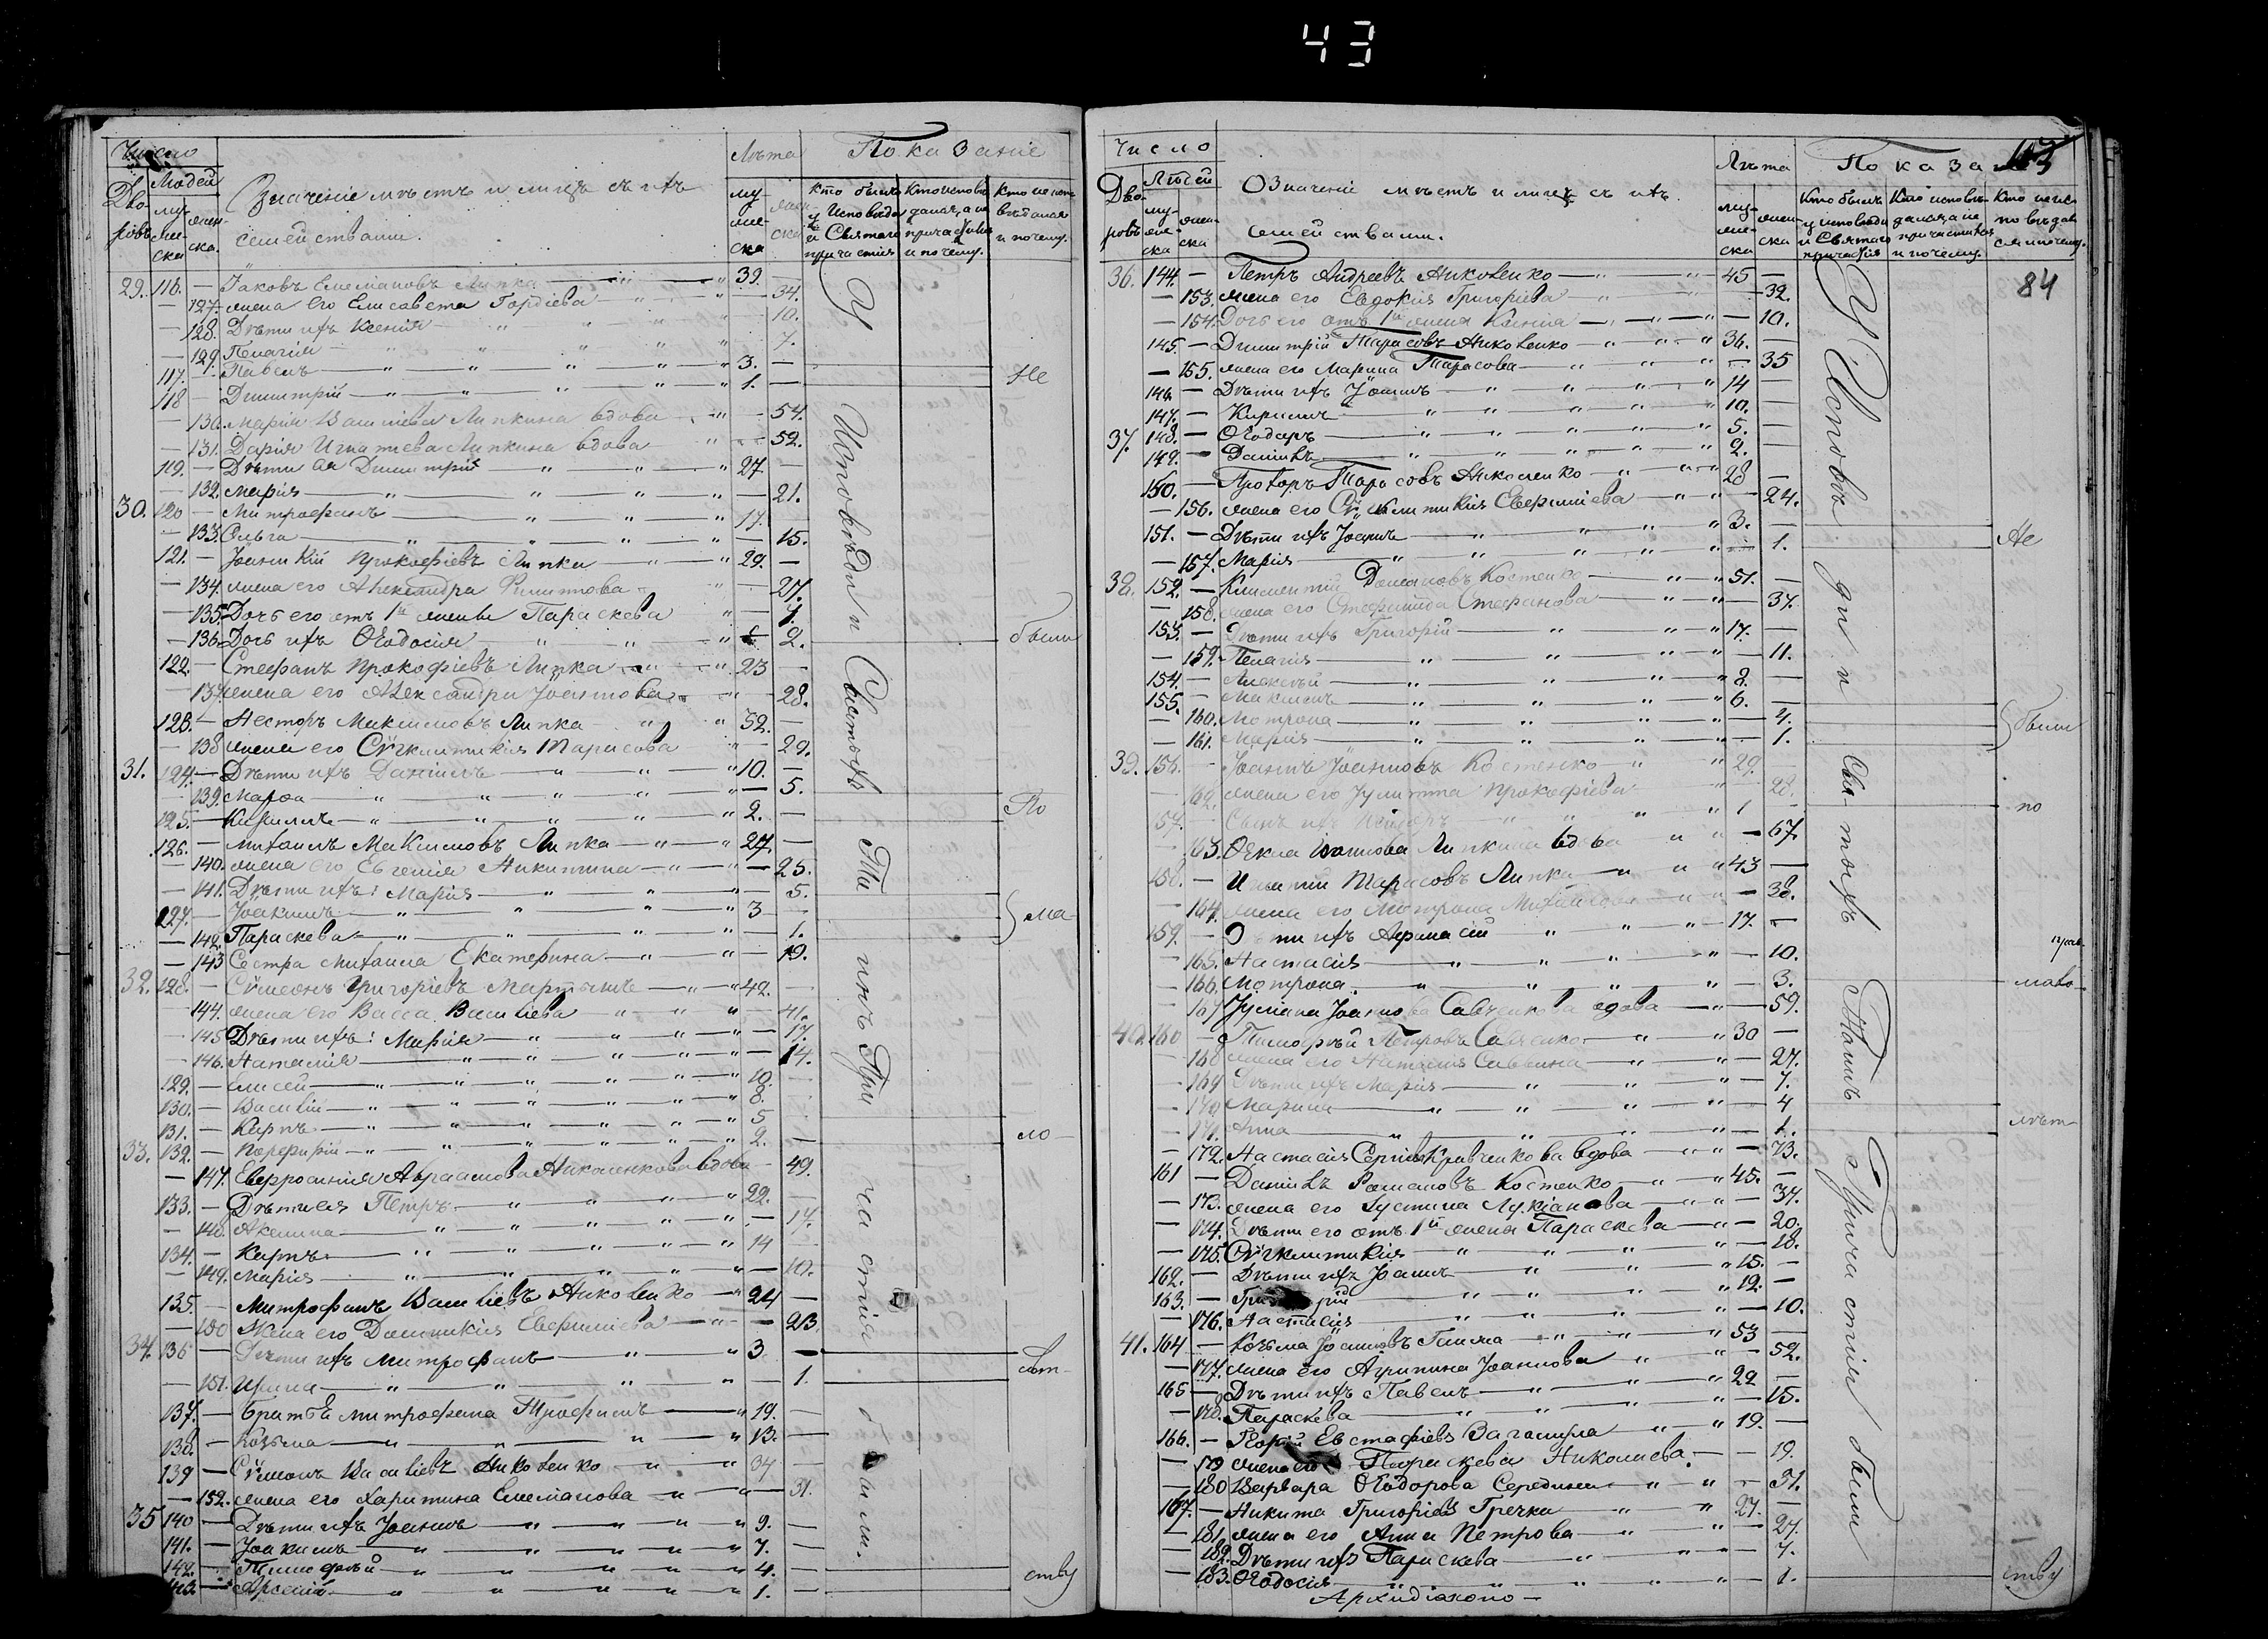 43
Число
Людей
Дво-
ровъ
му-
же-
ска
жен-
ска.
Значеніе мѣстъ и лицъ съ ихъ
семействами.
Лѣта
му-
же-
ска
жен-
ска
Показаніе
Кто былъ
у Исповѣди
и Святаго
причастія
Кто исповѣ-
дался, а не
причастился
и почему.
Кто не испо-
вѣдался
и почему.
29. 116. — Іаковъ Емеліановъ Липка 39.
127. жена его Елисавета Гордіева 34.
128. Дѣти ихъ Ксенія 10.
129. Пелагія 7.
117. — Павелъ 3. —
118 — Димитрій 1. — Не
130. Марія Василіева Липкина вдова 54.
131. Дарія Игнатіева Липкина вдова 52.
119. — Дѣти ея Димитрій 27 —
132. Марія 21.
30. 120 — Митрофанъ 17.
133. Ольга 15.
121. — Іоанникій Прокофіевъ Липка 29. —
134. жена его Александра Филиппова 27.
135. Дочь его отъ 1й жены Параскева 7.
136. Дочь ихъ Ѳеодосія 2. были
122. — Стефанъ Прокофіевъ Липка 23 —
137. жена его Александра Іоаннова 28.
123. — Несторъ Максимовъ Липка 32. —
138 жена его Сѵгклитикія Тарасова 29.
31. 124. — Дѣти ихъ Даніилъ 10. —
139. Марѳа 5.
125. — Кириллъ 2. — По
126. — Михаилъ Максимовъ Липка 27. —
140. жена его Евгенія Никитина 25.
141. Дѣти ихъ: Марія 5.
127. — Іоакимъ 3 ма-
142. Параскева 1.
143 Сестра Михаила Екатерина 19.
32. 128. — Сѵмеонъ Григоріевъ Мартынъ 42. —
144. жена его Васса Василіева 41.
145 Дѣти ихъ: Марія 17.
146. Наталія 14.
129. — Елисей 10.
130. — Василій 8.
131. — Карпъ 5
33. 132. — Порфирій 2. — ло-
147. Евфросинія Авраамова Николенкова вдова 49.
133. — Дѣти ея Петръ 22.
148. Акелина 17.
134. — Карпъ 14
149. Марія 10.
135. — Митрофанъ Василіевъ Николенко 24 —
150 Жена его Домникія 23.
34. 136 — Дѣти ихъ Митрофанъ 3. — лѣт-
151. Ирина 1.
137. — Братъ Митрофана Трофимъ 19. —
138. — Козьма 13. —
139 — Сѵмеонъ Василіевъ Николенко 34 —
152. жена его Харитина Емеліанова 31.
35 140 — Дѣти ихъ Іоаннъ 9. —
141. — Іоакимъ 7. —
142. — Тимофей 4. —
143. — Арсеній 1. — ству
У Исповѣди и Святыхъ Таинъ Причастія были.
Число
Людей
Дво-
ровъ
му-
же-
ска
жен-
ска
Означеніе мѣстъ и лицъ съ ихъ
семействами.
Лѣта
му-
же-
ска
жен-
ска
Показа
Кто былъ
у исповѣди
и Святаго
причастія
Кто исповѣ-
дался, а не
причастился
и почему.
Кто не ис-
повѣдал-
ся и почему.
84
36. 144. — Петръ Андреевъ Николенко 45 —
153. жена его Евдокія Григоріева 32.
154. Дочь его отъ 1й жены Ксенія 10.
145. — Димитрій Тарасовъ Николенко 36. —
155. жена его Марина Тарасова 35
146. — Дѣти ихъ Іоаннъ 14 —
147. — Кириллъ 10. —
37. 148. — Ѳеодоръ 5. —
149. — Даніилъ 2. —
150. — Прохоръ Тарасовъ Николенко 28 —
156. жена его Сѵгклитикія 24.
151. — Дѣти ихъ Іоаннъ 3. — Не
157. Марія 1.
38. 152. — Климентій Романовъ Костенко 51. —
158. жена его Стефанида Стефанова 37.
153. — Дѣти ихъ Григорій 17. —
159. Пелагія 11.
154. — Алексѣй 8. —
155. — Максимъ 6. —
160. Мотрона 4. были
161. Марія 1.
39. 156. — Іоаннъ Іоанновъ Костенко 29. —
162. жена его Іулитта Прокофіева 28.
157. — Сынъ ихъ 1 по
163. Ѳекла Іоаннова Липкина вдова 67.
158. — Игнатій Тарасовъ Липка 43 —
164. жена его Мотрона Михаилова 38.
159. — Дѣти ихъ Афанасій 17. —
165. Настасія 10.
166. Мотрона 3. мало-
167 Іуліана Іоаннова Савченкова вдова 59.
40. 160 — Тимоѳей Петровъ Савченко 30 —
168 жена его Наталія Саввина 27.
169 Дѣти ихъ Марія 7.
170 Марина 4
171. Анна 1. лѣт-
172. Настасія Сергіева Кривченкова вдова 73.
161 — Даніилъ Романовъ Костенко 45. —
173. жена его Іустина Лукіанова 37.
174. Дѣти его отъ 1й жены Параскева 20.
175. Сѵгклитикія 18.
162. — Дѣти ихъ Іоаннъ 15. —
163. — Григорій 12. —
176. Настасія 10.
41. 164 — Козьма Іоанновъ 53 —
177. жена его Агрипина Іоаннова 52.
165 — Дѣти ихъ Павелъ 22 —
178. Параскева 15.
166. — Георгій Евстафіевъ 19. —
179 жена его Параскева Николаева 19.
180 Варвара Ѳеодорова 31.
167. — Никита Григоріевъ Гречка 27. —
181. жена его Анна Петрова 27.
182. Дѣти ихъ Параскева 7.
183. Ѳеодосія 1. ству
У Исповѣди и Святыхъ Таинъ Причастія были
Архидіаконо-